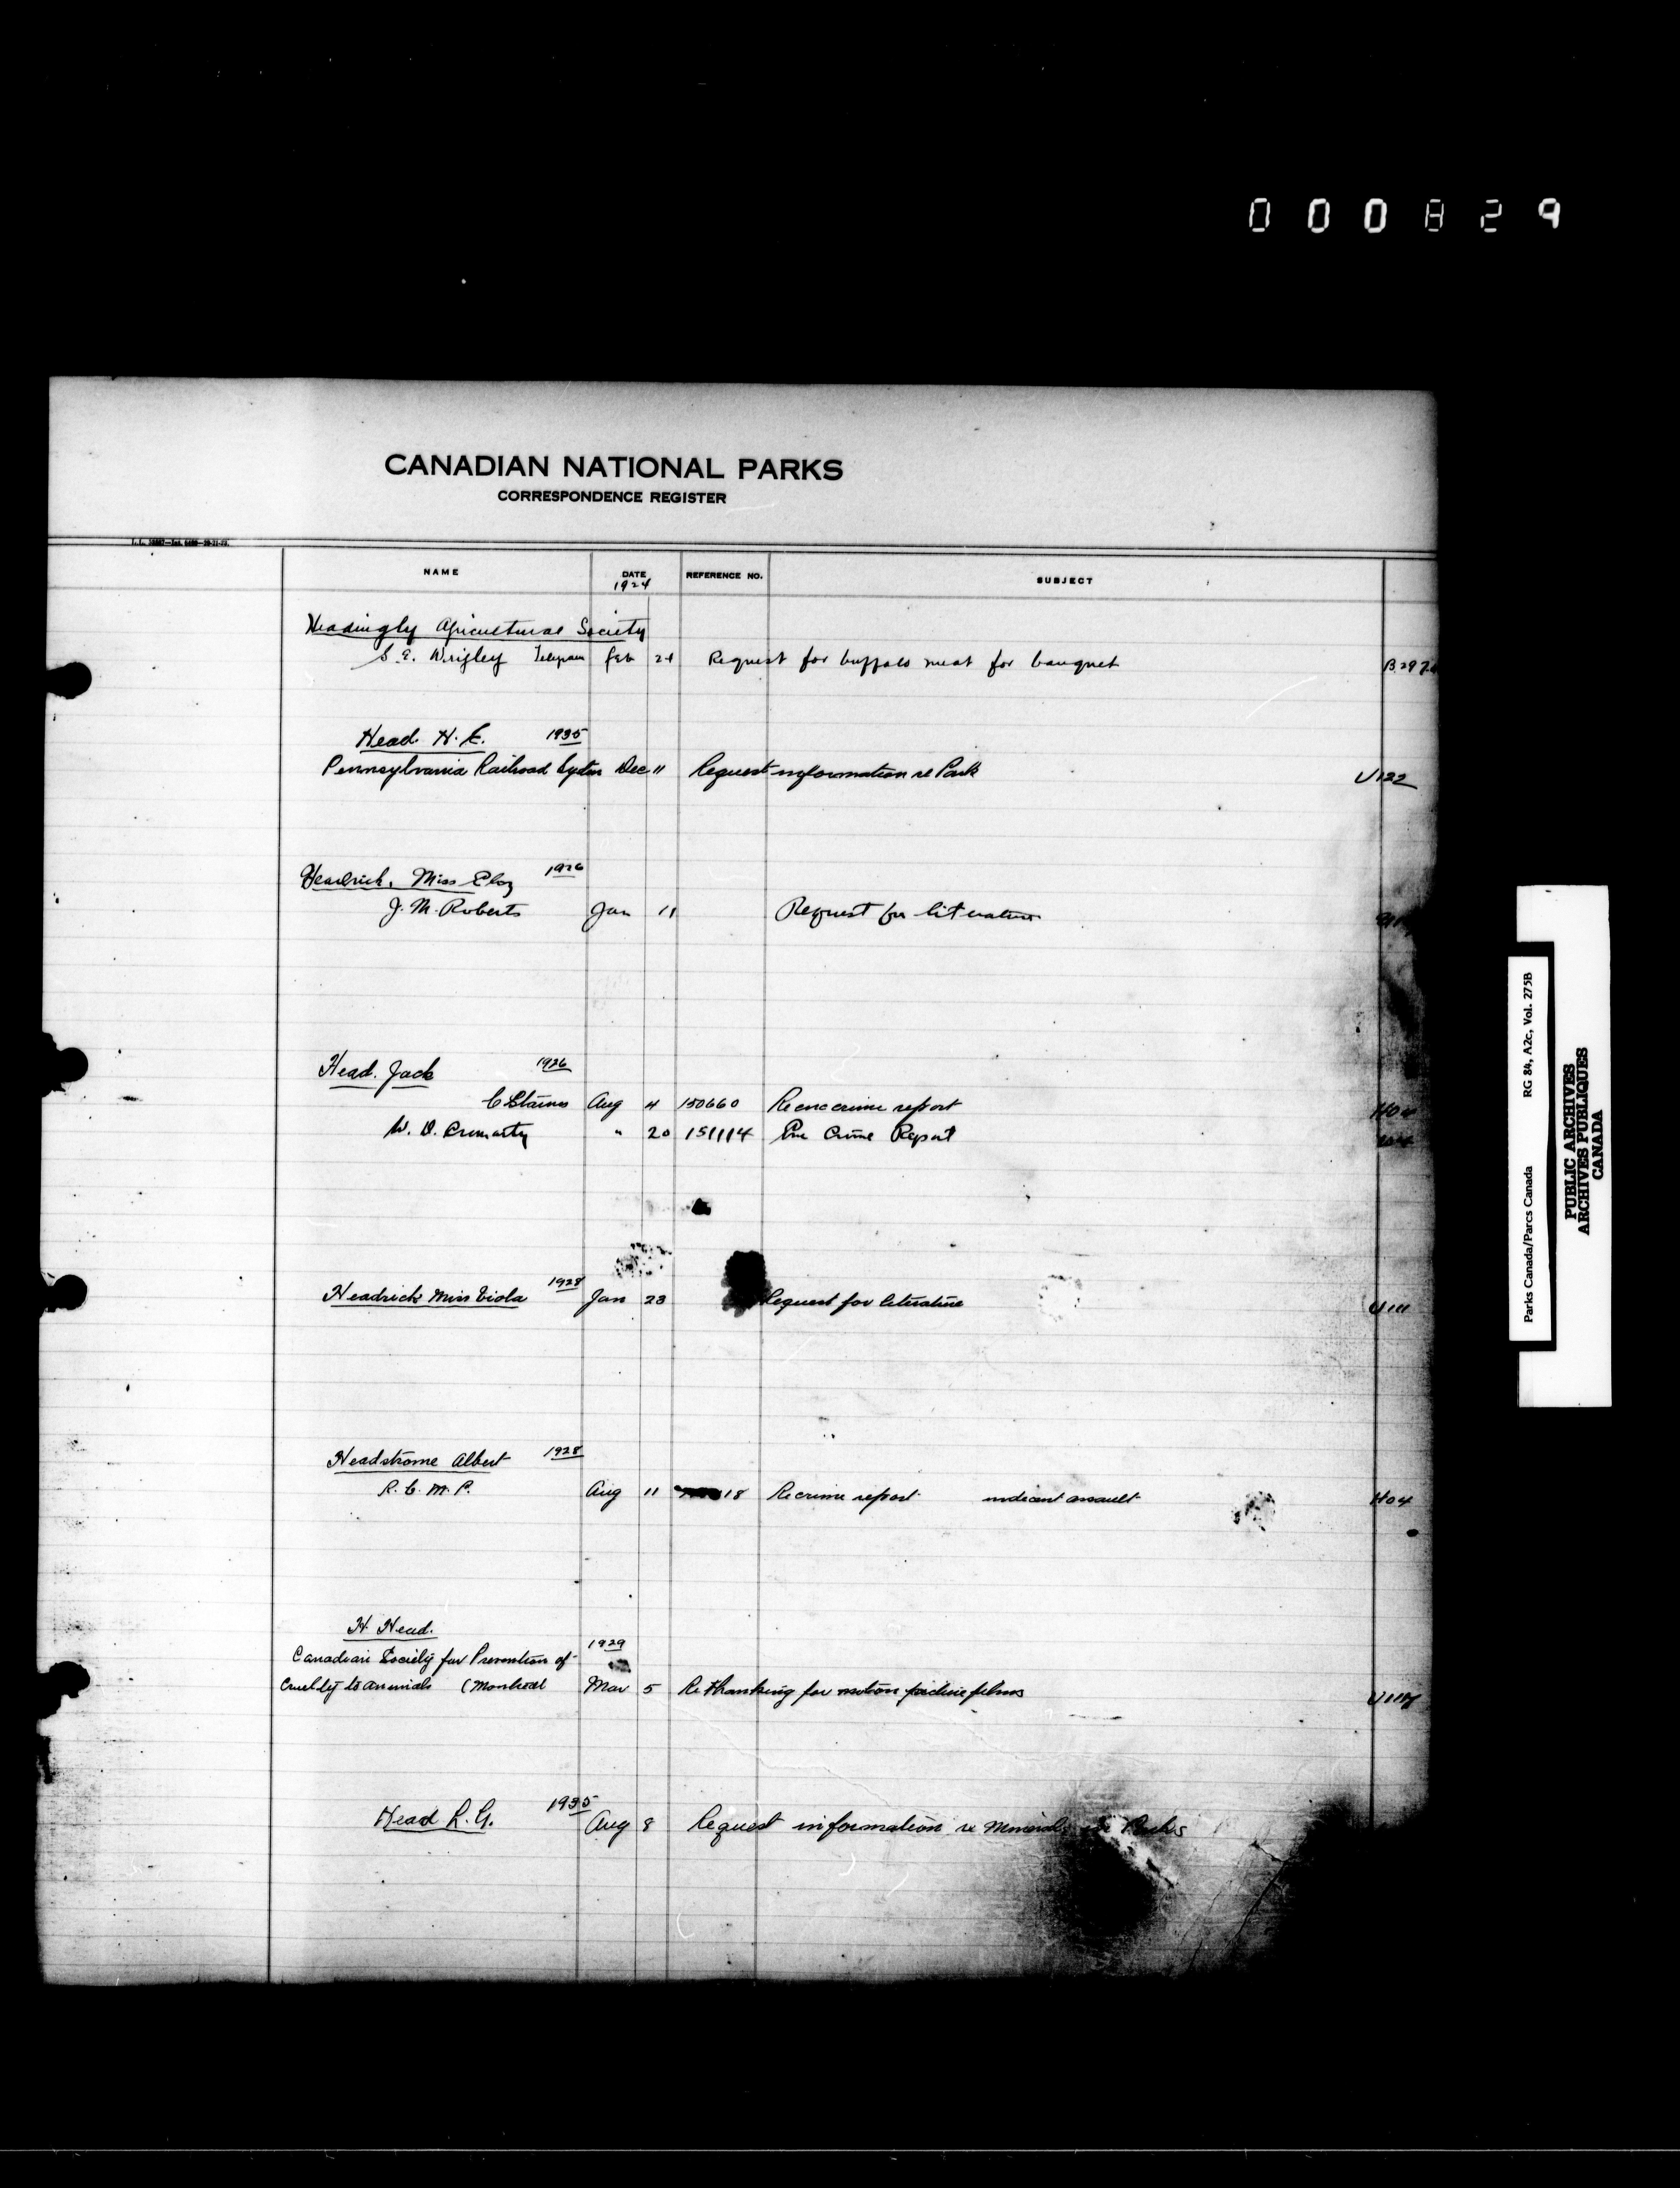 000829
CANADIAN NATIONAL PARKS
CORRESPONDENCE REGISTER
NAME DATE REFERENCE NO. SUBJECT
1924
Headingly Agricultural Society
S. E. Wrigley Telegram Feb 21 Request for buffalo meat for banquet B.297
Head. H. E. 1935
Pennsylvania Railroad System Dec 11 Request information re Park U122
Headrick, Miss 1926
J. M. Roberts Jan 11 Request for literature
Head. Jack 1926
C Staines Aug 4 150660 Re crime report H04
W. D. Cromarty " 20 151114 Crime Report
Headrick Miss Viola 1928 Jan 23 Request for literature U111
Headstrome Albert 1928
R. C. M. P. Aug 11 18 Re crime report indecent assault H04
H. Head.
Canadian Society for Prevention of 1929
Cruelty to animals (Montreal Mar 5 Re thanking for motion picture films U117
Head R. G. 1935 Aug 8 Request information re Minerals in Parks
Parks Canada/Parcs Canada RG 84, A2c, Vol. 275B
PUBLIC ARCHIVES
ARCHIVES PUBLIQUES
CANADA